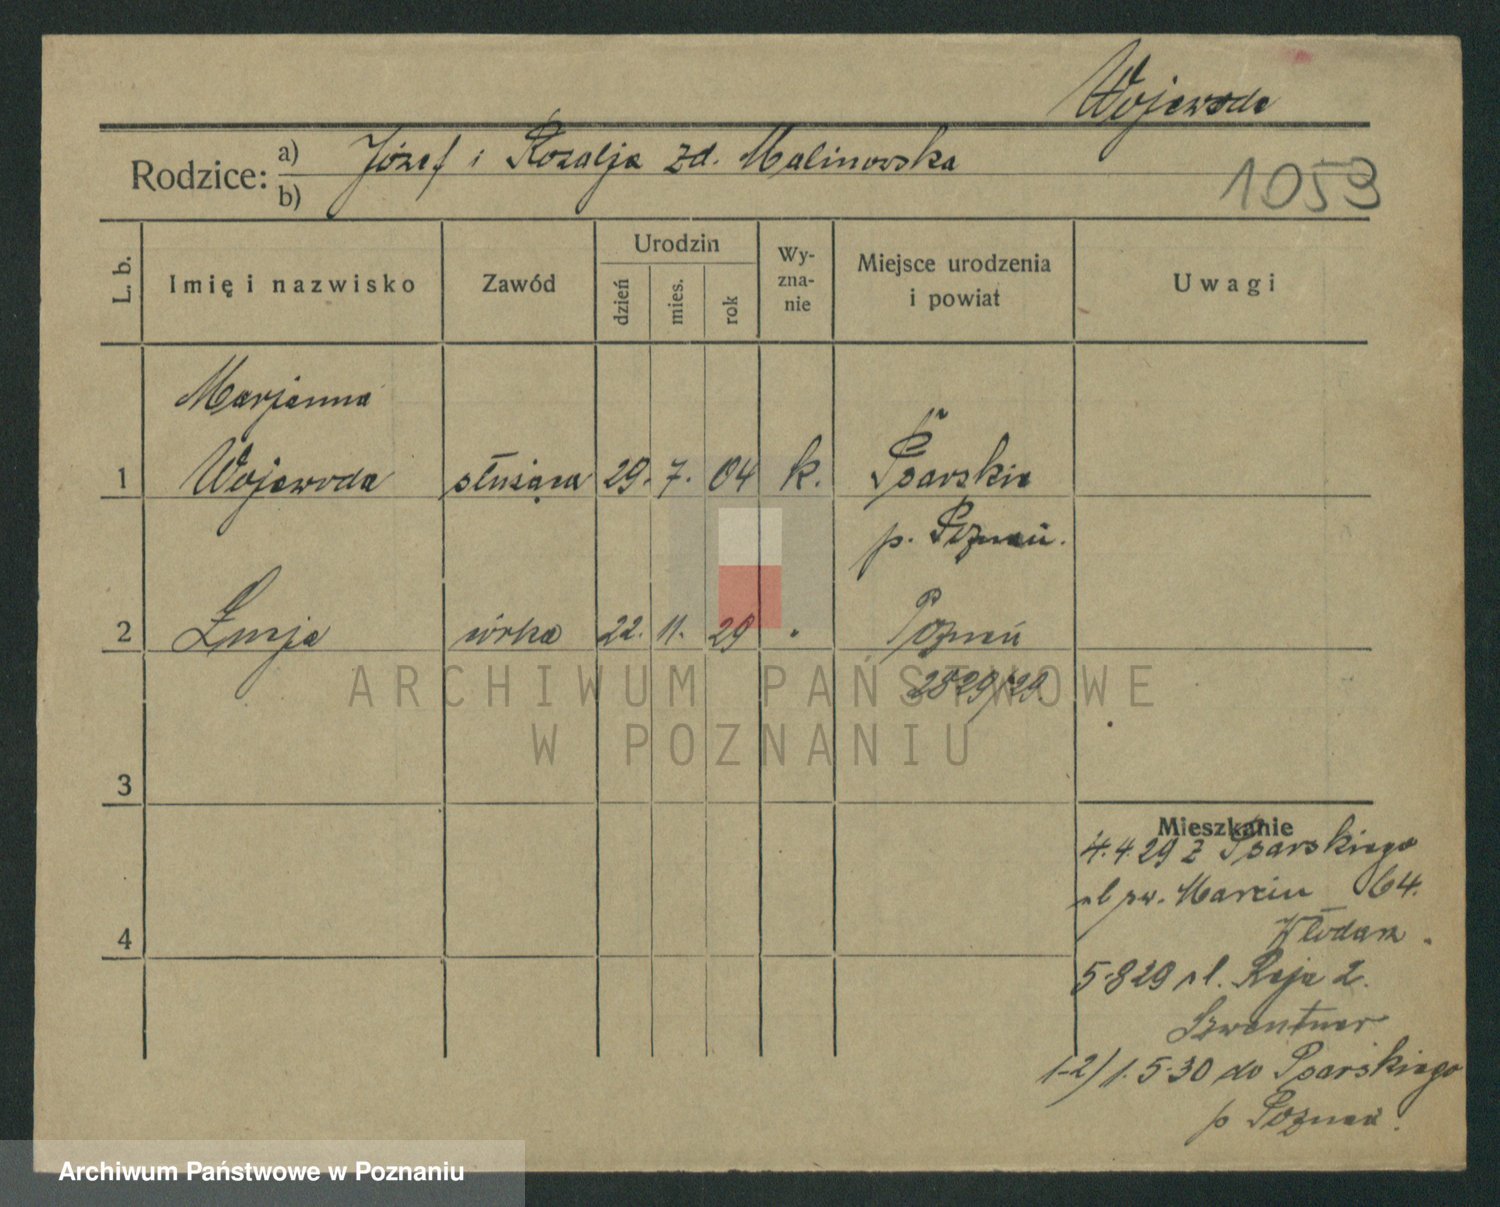 Wojewoda
Rodzice: a) Józef i Rozalja zd. Malinowska
b)
1053
L. b.
Imię i nazwisko
Zawód
Urodzin
dzień
mies.
rok
Wy-
zna-
nie
Miejsce urodzenia
i powiat
Uwagi
Marjanna
1 Wojewoda służąca 29. 7. 04 k. Psarskie
p. Poznań.
2 córka 22. 11. 29 " Poznań
2829/29
3
4
Mieszkanie
4.4.29 z Psarskiego
ul św. Marcin 64.
Włodarz.
5.8 29 ul. Reja 2.
Szwentner
1-2/ 1.5.30 do Psarskiego
p Poznań.
ARCHIWUM PAŃSTWOWE
W POZNANIU
Archiwum Państwowe w Poznaniu